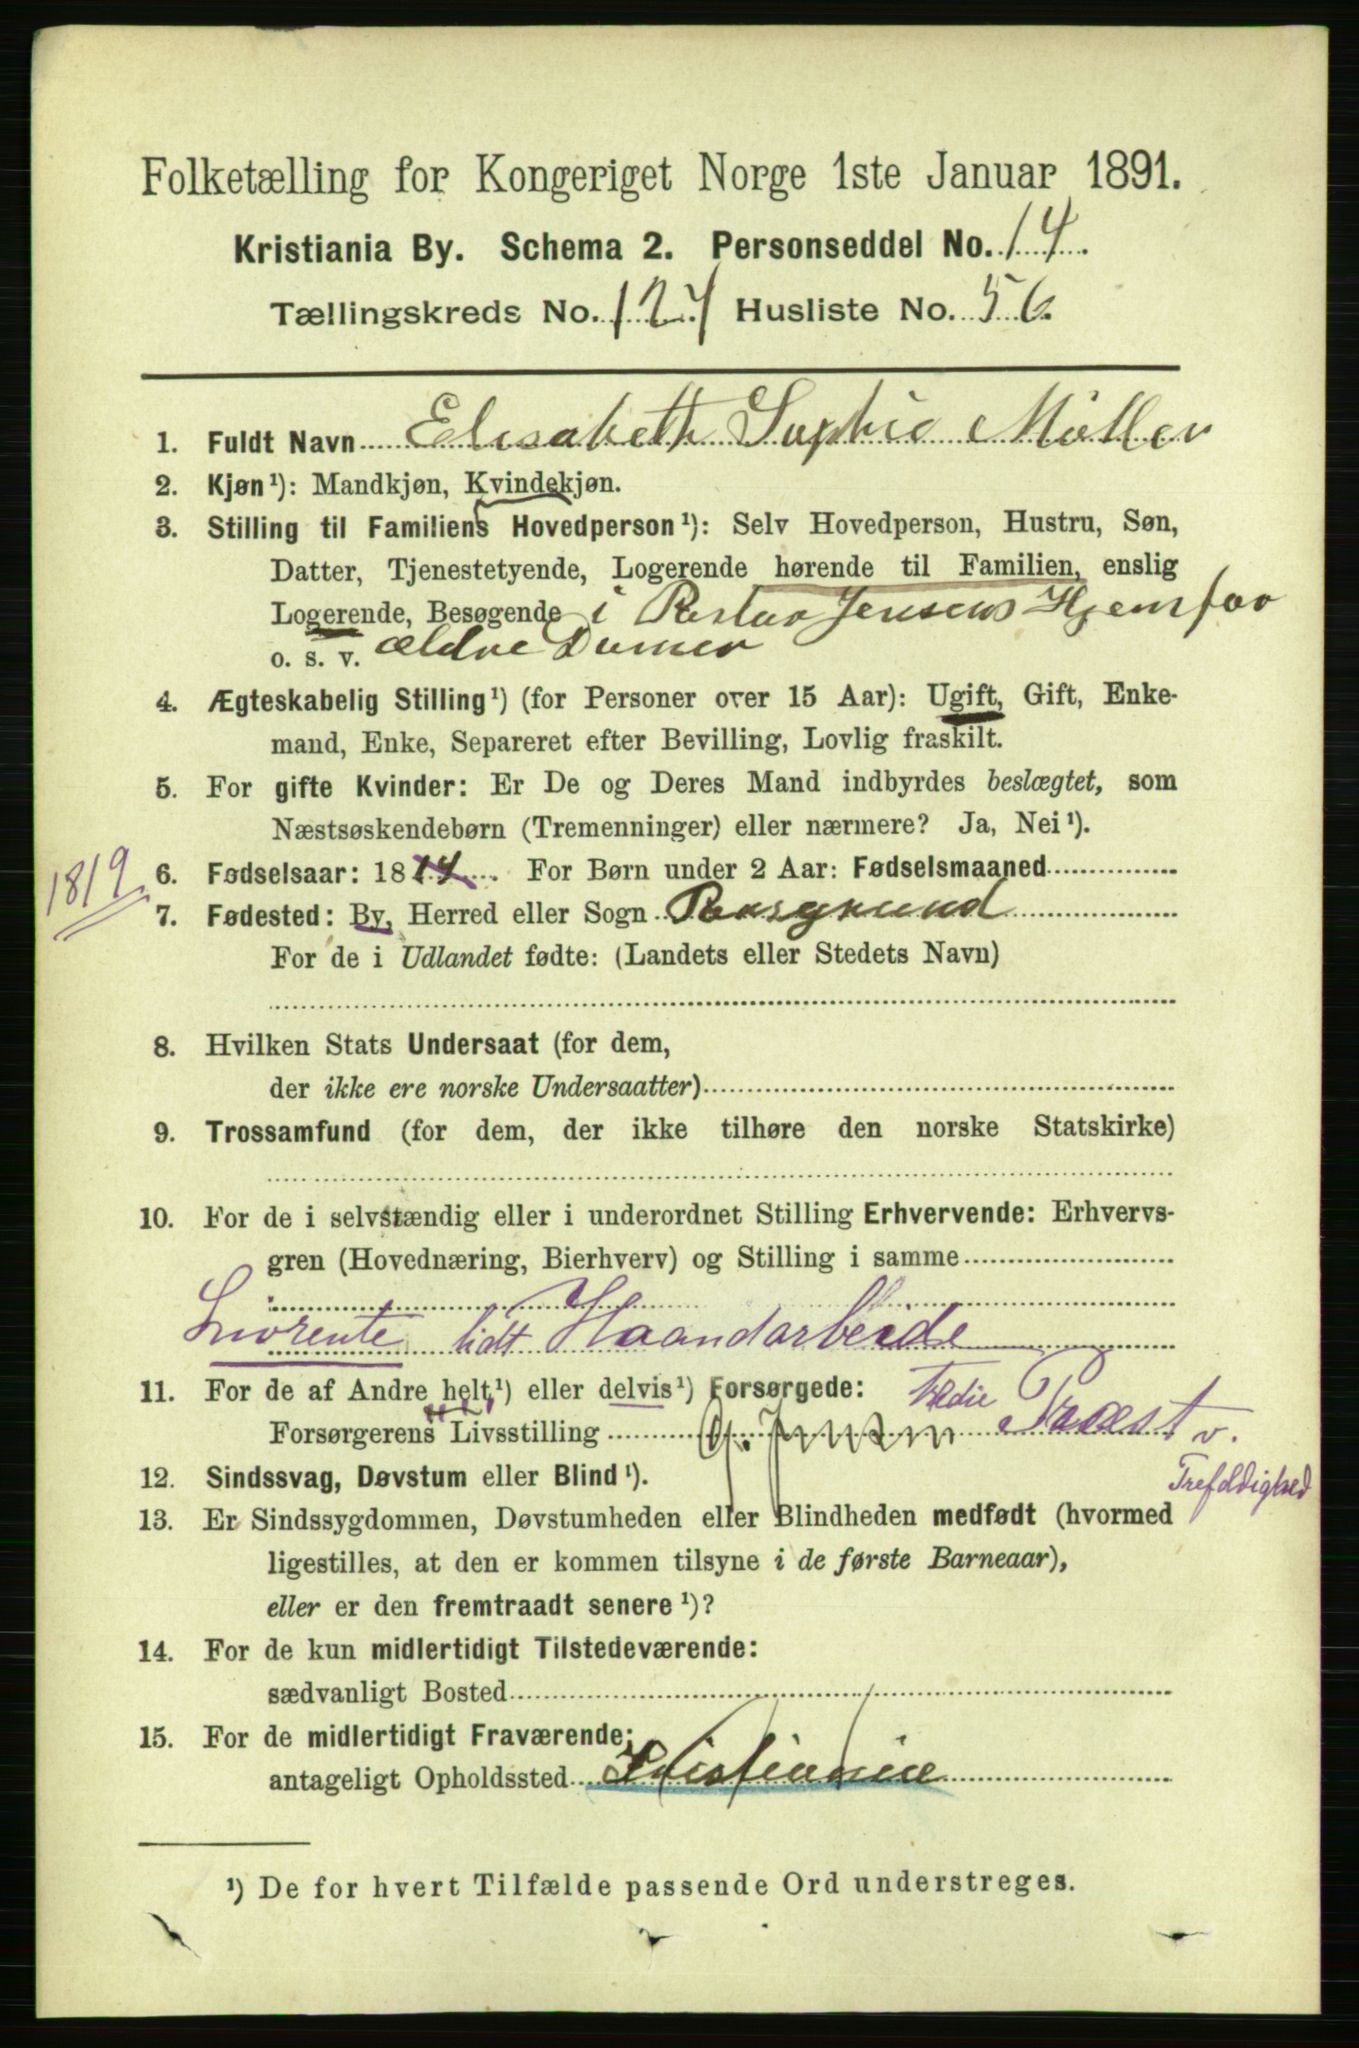 Folketælling for Kongeriget Norge 1ste Januar 1891.
Kristiania By. Schema 2. Personseddel No. 14.
Tællingskreds No. 124 Husliste No. 56.
1. Fuldt Navn Elisabeth Sophie Müller
2. Kjøn ¹): Mandkjøn, Kvindekjøn.
3. Stilling til Familiens Hovedperson ¹): Selv Hovedperson, Hustru, Søn,
Datter, Tjenestetyende, Logerende hørende til Familien, enslig
Logerende, Besøgende i Pastor Jensens Hjem for
o. s. v. ældre Damer
4. Ægteskabelig Stilling ¹) (for Personer over 15 Aar): Ugift, Gift, Enke-
mand, Enke, Separeret efter Bevilling, Lovlig fraskilt.
5. For gifte Kvinder: Er De og Deres Mand indbyrdes beslægtet, som
Næstsøskendebørn (Tremenninger) eller nærmere? Ja, Nei ¹).
1819
6. Fødselsaar: 1814. For Børn under 2 Aar: Fødselsmaaned
7. Fødested: By, Herred eller Sogn Porsgrund
For de i Udlandet fødte: (Landets eller Stedets Navn)
8. Hvilken Stats Undersaat (for dem,
der ikke ere norske Undersaatter)
9. Trossamfund (for dem, der ikke tilhøre den norske Statskirke)
10. For de i selvstændig eller i underordnet Stilling Erhvervende: Erhvervs-
gren (Hovednæring, Bierhverv) og Stilling i samme
Livrente lidt Haandarbeide
11. For de af Andre helt ¹) eller delvis ¹) Forsørgede: Tredie
Forsørgerens Livsstilling G. Jensen Præst v.
Trefoldighed
12. Sindssvag, Døvstum eller Blind ¹).
13. Er Sindssygdommen, Døvstumheden eller Blindheden medfødt (hvormed
ligestilles, at den er kommen tilsyne i de første Barneaar),
eller er den fremtraadt senere ¹)?
14. For de kun midlertidigt Tilstedeværende:
sædvanligt Bosted
15. For de midlertidigt Fraværende:
antageligt Opholdssted Kristiania
¹) De for hvert Tilfælde passende Ord understreges.